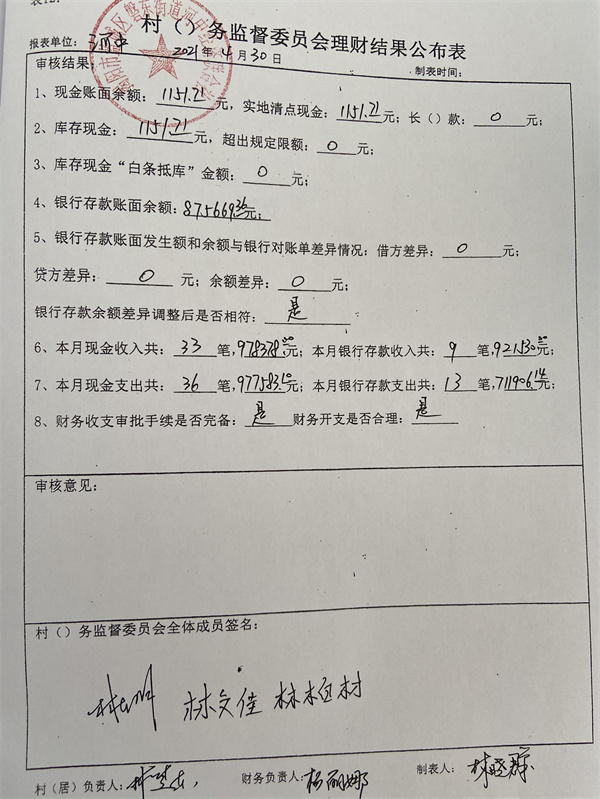 表12:
村（）务监督委员会理财结果公布表
报表单位: 河中 2021年4月30日 制表时间:
审核结果:
1、现金账面余额: 1151.21元, 实地清点现金: 1151.21元; 长（）款: 0元;
2、库存现金: 1151.21元, 超出规定限额: 0元;
3、库存现金“白条抵库”金额: 0元;
4、银行存款账面余额: 875669.36元;
5、银行存款账面发生额和余额与银行对账单差异情况: 借方差异: 0元;
贷方差异: 0元; 余额差异: 0元;
银行存款余额差异调整后是否相符: 是
6、本月现金收入共: 33笔, 978378.00元; 本月银行存款收入共: 9笔, 921530.00元;
7、本月现金支出共: 36笔, 977583.10元; 本月银行存款支出共: 13笔, 711906.14元;
8、财务收支审批手续是否完备: 是 财务开支是否合理: 是
审核意见:
村（）务监督委员会全体成员签名:
林文佳 林植村
村（居）负责人: 财务负责人: 杨丽娜 制表人: 林晓群